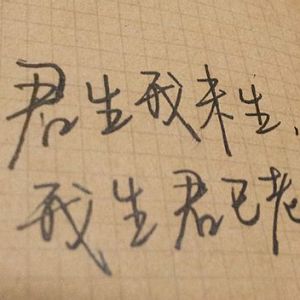 君生我未生,
我生君已老